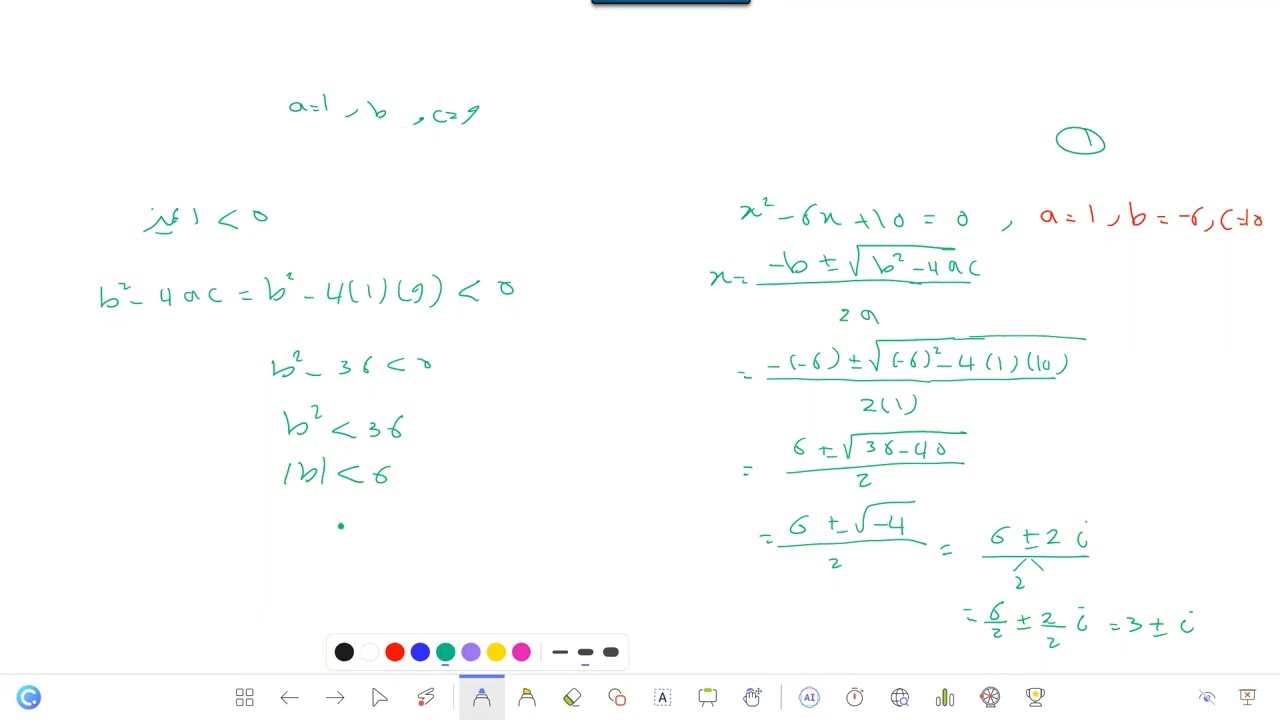 a=1 , b , c=9
المميز < 0
b² - 4ac = b² - 4(1)(9) < 0
b² - 36 < 0
b² < 36
|b| < 6
1
x² - 6x + 10 = 0 , a=1 , b=-6 , c=10
x = (-b ± √(b² - 4ac)) / 2a
= (-(-6) ± √((-6)² - 4(1)(10))) / 2(1)
= (6 ± √(36-40)) / 2
= (6 ± √-4) / 2 = (6 ± 2i) / 2
= 6/2 ± 2/2 i = 3 ± i
A
AI